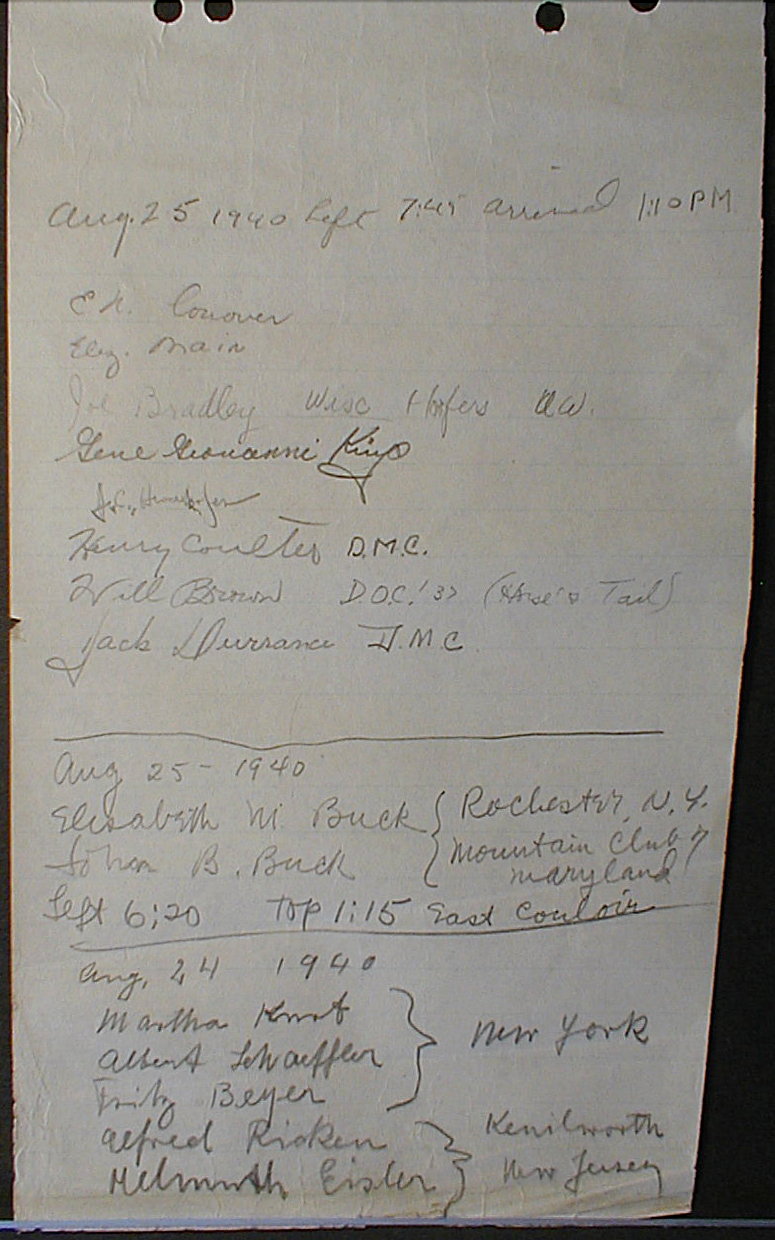 Aug. 25 1940 left 7:45 arrived 1:10 PM
E. R. Conover
Eliz. Main
Joe Bradley Wisc Hoofers UW.
Gene Giovanni King
Henry Coulter D.M.C.
Will Brown D.O.C. '37 (Horse's Tail)
Jack Durrance D.M.C.
Aug 25 - 1940
Elisabeth M. Buck { Rochester, N.Y.
John B. Buck { Mountain Club of
Maryland
Left 6:20 Top 1:15 East Couloir
Aug, 24 1940
Martha
Albert Schaeffler } New York
Fritz Beyer
Alfred Ricken } Kenilworth
Helmuth Eisler } New Jersey